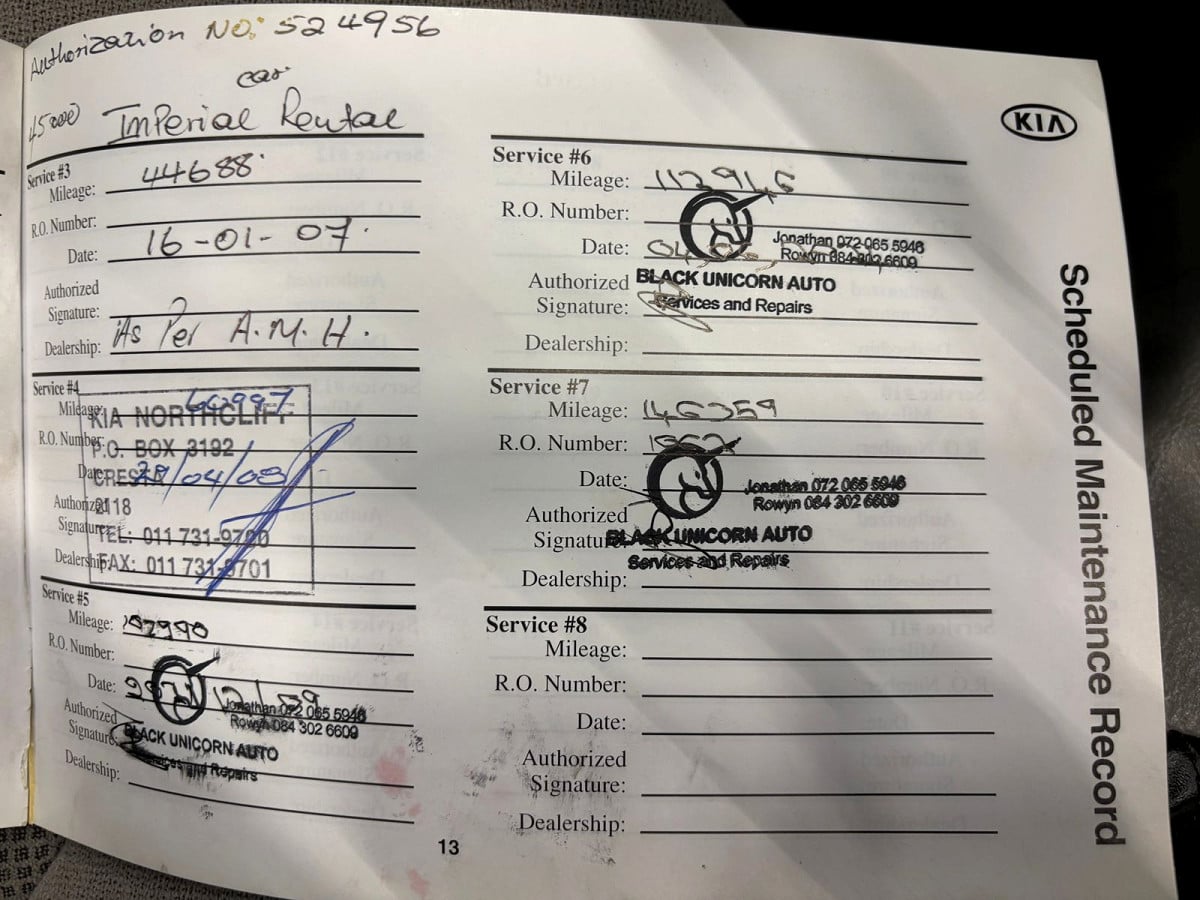 Authorization NO: 524956
car
45000 Imperial Rental
Service #3
Mileage: 44688
R.O. Number:
Date: 16-01-07.
Authorized
Signature:
Dealership: As Per A.M.H.
Service #4
Mileage: 66997
KIA NORTHCLIFF
R.O. Number:
P.O. BOX 3192
Date: 28/04/08
CRESTA
Authorized
2118
Signature:
TEL: 011 731-9700
Dealership:
FAX: 011 731-9701
Service #5
Mileage: 102990
R.O. Number:
Date:
Jonathan 072 065 5946
Rowyn 084 302 6609
Authorized
Signature:
BLACK UNICORN AUTO
Services and Repairs
Dealership:
KIA
Service #6
Mileage: 112946
R.O. Number:
Date:
Jonathan 072 065 5946
Rowyn 084 302 6609
Authorized
BLACK UNICORN AUTO
Signature:
Services and Repairs
Dealership:
Service #7
Mileage: 146359
R.O. Number:
Date:
Jonathan 072 065 5946
Rowyn 084 302 6609
Authorized
Signature:
BLACK UNICORN AUTO
Services and Repairs
Dealership:
Service #8
Mileage:
R.O. Number:
Date:
Authorized
Signature:
Dealership:
13
Scheduled Maintenance Record